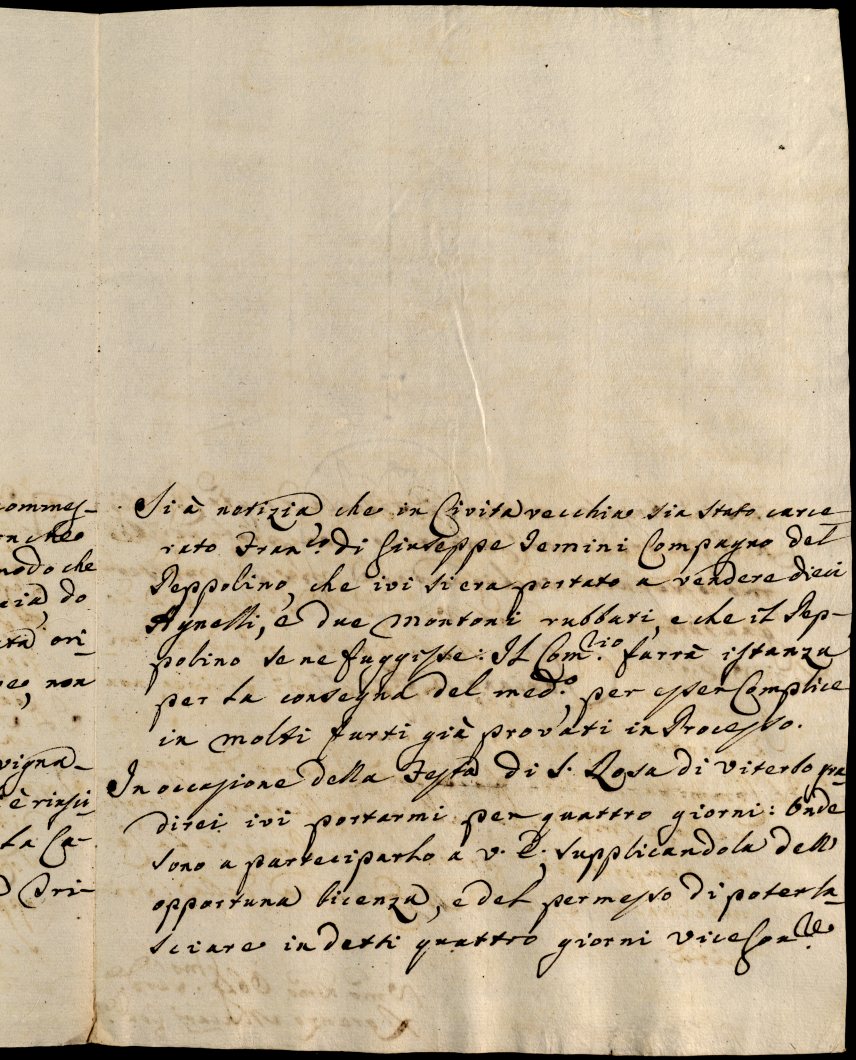 commes-
anche
modo che
cia, do
ata ori-
pe, non
vigna-
è rinsci-
La Ca-
Pri-
Si à notizia che in Civitavecchia sia stato carce-
rato Fran.co di Giuseppe Iemini Compagno del
Peppolino, che ivi si era portato a vendere dieci
Agnelli, e due montoni rubbati, e che il Pep-
polino se ne fuggisse: Il Com.rio farrà istanza
per la consegna del med.o, per esser Complice
in molti furti già provati in Processo.
In occasione della Festa di S. Rosa di Viterbo gra-
direi ivi portarmi per quattro giorni: Onde
sono a parteciparlo a V. E., supplicandola dell'
opportuna licenza, e del permesso di poter la-
sciare in detti quattro giorni